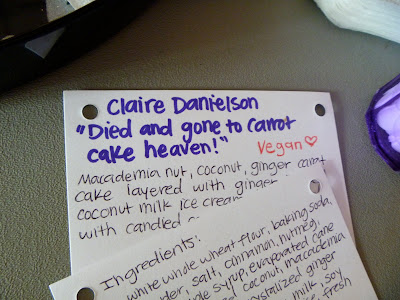 Claire Danielson
"Died and gone to carrot
cake heaven!"
Vegan
Macademia nut, coconut, ginger carrot
cake layered with ginger
coconut milk ice cream
with candied
Ingredients:
white whole wheat flour, baking soda,
salt, cinnamon, nutmeg,
syrup, evaporated cane
coconut, macadamia
crystalized ginger
milk, soy
fresh